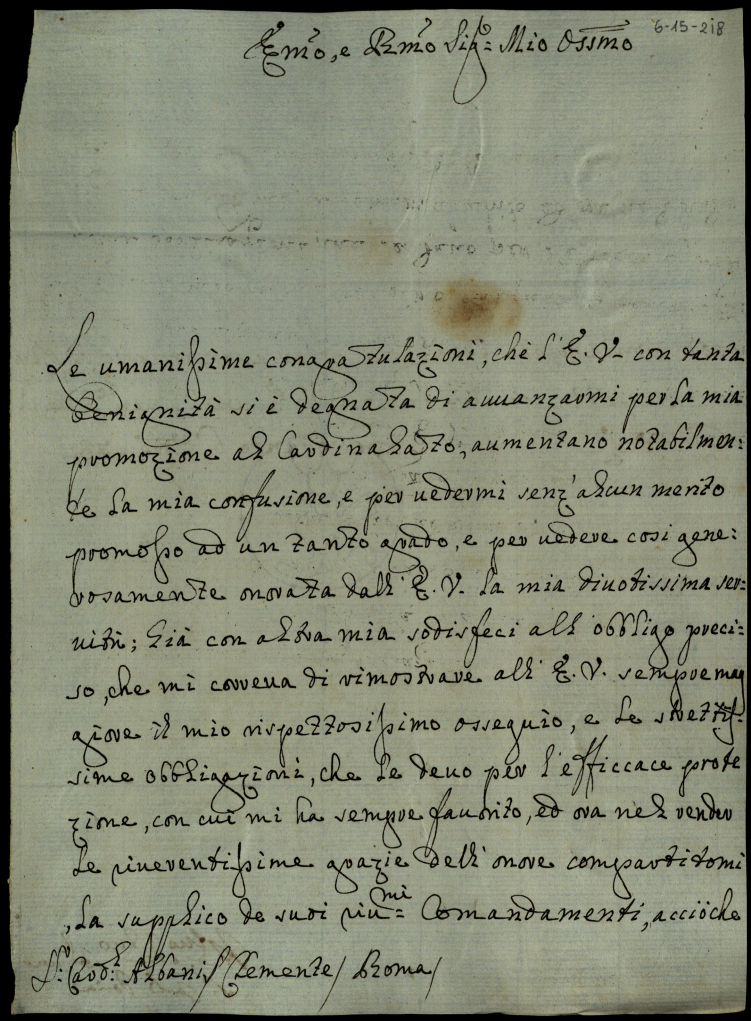 6-15-218
Em̃o, e Rm̃o Sig.r Mio Oss̃mo
Le umanissime congratulazioni, che l'E. V. con tanta
Benignità si è degnata di auuanzarmi per la mia
promozione al Cardinalato, aumentano notabilmen:
te la mia confusione, e per uedermi senz'alcun merito
promosso ad un tanto grado, e per uedere cosi gene:
rosamente onorata dall'E. V. la mia diuotissima ser:
uitù; Già con altra mia sodisfeci all'obbligo preci:
so, che mi correua di rimostrare all'E. V. sempre mag
giore il mio rispettosissimo ossequio, e le strettis:
sime obbligazioni, che le deuo per l'efficcace prote
zione, con cui mi ha sempre fauorito, ed ora nel render
le riuerentissime grazie dell'onore compartitomi
, la supplico de suoi riu:mi Comandamenti, acciòche
S.r Card.l Albani / Clemente / Roma /